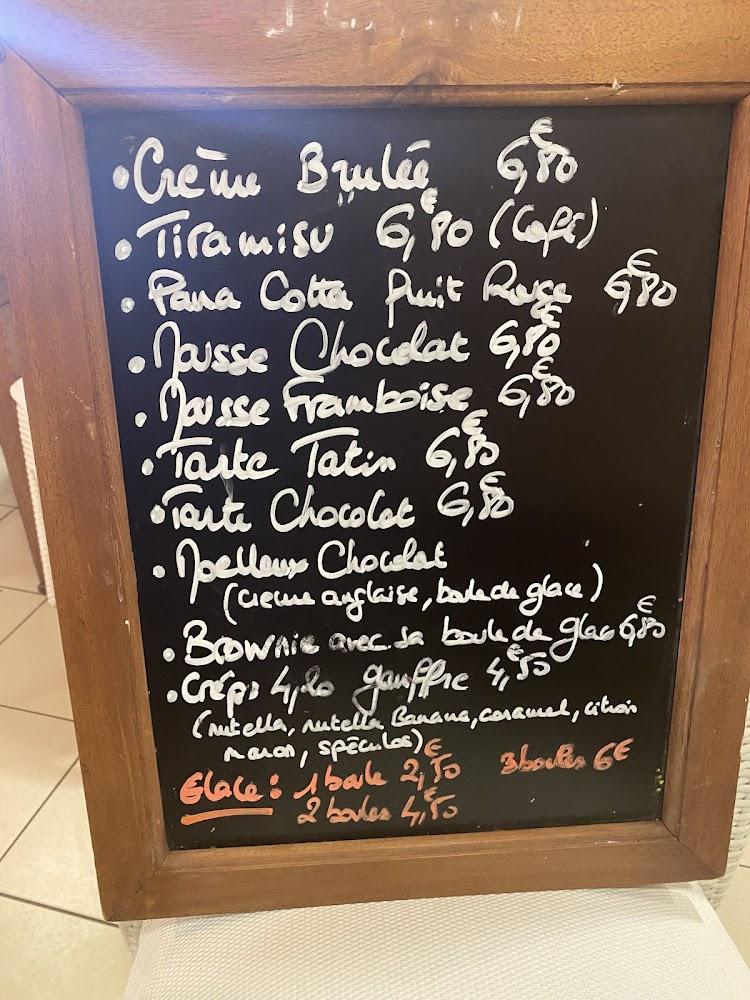 • Crème Brulée 6,80€
• Tiramisu 6,80€ (Café)
• Pana Cotta fruit Rouge 6,80€
• Mousse Chocolat 6,80€
• Mousse Framboise 6,80€
• Tarte Tatin 6,80€
• Tarte Chocolat 6,80€
• Moelleux Chocolat
(crème anglaise, boule de glace)
• Brownie avec sa boule de glace 6,80€
• Crêpe gauffre 4,50€
(nutella, nutella Banane, caramel, citron
maron, spéculos)
Glace : 1 boule 2,50€ 3 boules 6€
2 boules 4,50€